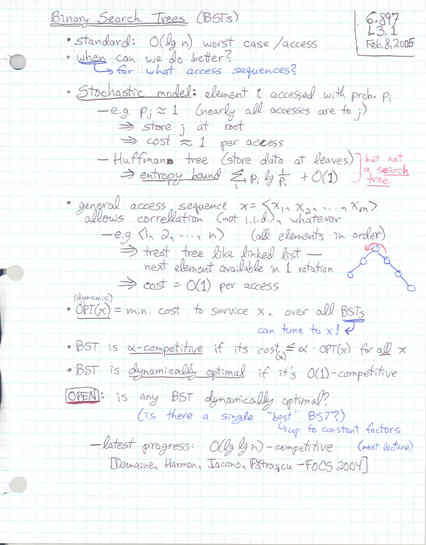 Binary Search Trees (BSTs)
6.897
L3.1
Feb. 8, 2005
• standard: O(lg n) worst case/access
• when can we do better?
↳ for what access sequences?
• Stochastic model: element i accessed with prob. pᵢ
— e.g. pⱼ ≈ 1 (nearly all accesses are to j)
⇒ store j at root
⇒ cost ≈ 1 per access
— Huffman tree (store data at leaves)
but not a search tree
⇒ entropy bound Σᵢ pᵢ lg 1/pᵢ + O(1)
• general access sequence x = ⟨x₁, x₂, ..., xₘ⟩
allows correllation (not i.i.d.), whatever
— e.g. ⟨1, 2, ..., n⟩ (all elements in order)
⇒ treat tree like linked list —
next element available in 1 rotation
⇒ cost = O(1) per access
(dynamic)
• OPT(x) = min. cost to service x, over all BSTs
can tune to x!
• BST is α-competitive if its cost(x) ≤ α · OPT(x) for all x
• BST is dynamically optimal if it's O(1)-competitive
OPEN: is any BST dynamically optimal?
(is there a single "best" BST?)
↳ up to constant factors
— latest progress: O(lg lg n)-competitive (next lecture)
[Demaine, Harmon, Iacono, Pǎtraşcu — FOCS 2004]